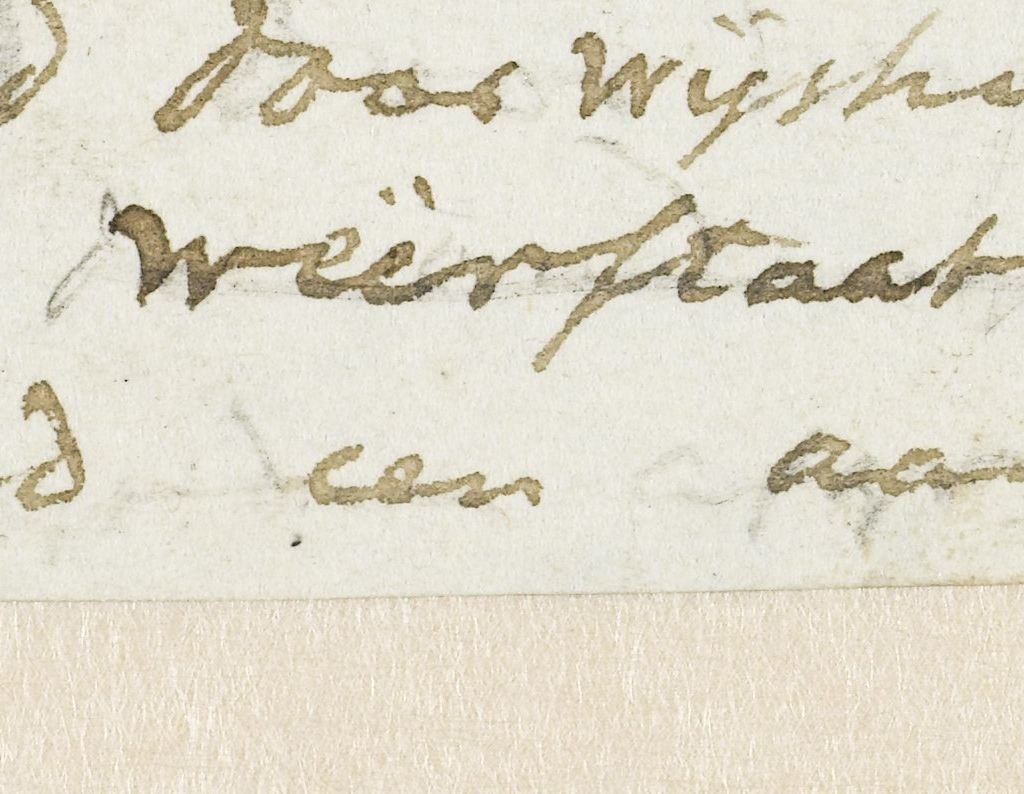 door wijsh
weërstaat
d een aan